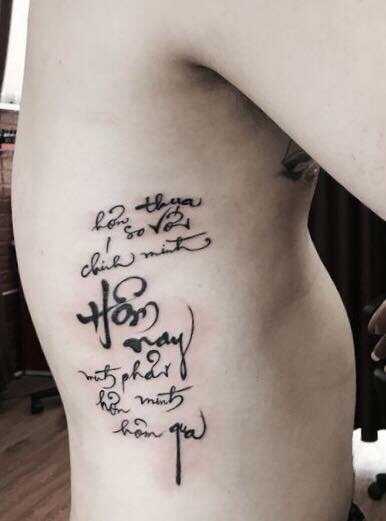 hơn thua
so với
chính mình
Hôm
nay
mình phải
hơn mình
hôm qua